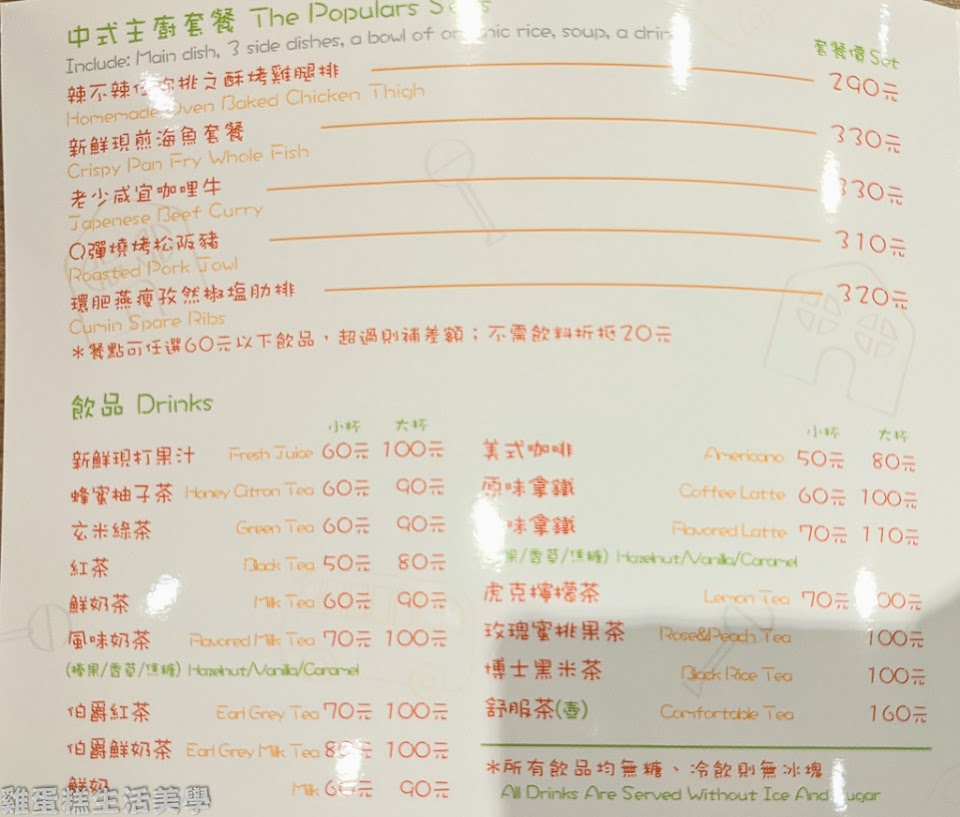 中式主廚套餐 The Populars Sets
Include: Main dish, 3 side dishes, a bowl of organic rice, soup, a drink 套餐價 Set
辣不辣 挑之酥烤雞腿排 290元
Homemade Oven Baked Chicken Thigh
新鮮現煎海魚套餐 330元
Crispy Pan Fry Whole Fish
老少咸宜咖哩牛 330元
Japenese Beef Curry
Q彈燒烤松阪豬 310元
Roasted Pork Jowl
環肥燕瘦孜然椒塩肋排 320元
Cumin Spare Ribs
*餐點可任選60元以下飲品，超過則補差額；不需飲料折抵20元
飲品 Drinks
小杯 大杯
新鮮現打果汁 Fresh Juice 60元 100元
蜂蜜柚子茶 Honey Citron Tea 60元 90元
玄米綠茶 Green Tea 60元 90元
紅茶 Black Tea 50元 80元
鮮奶茶 Milk Tea 60元 90元
風味奶茶 Flavored Milk Tea 70元 100元
(榛果/香草/焦糖) Hazelnut/Vanilla/Caramel
伯爵紅茶 Earl Grey Tea 70元 100元
伯爵鮮奶茶 Earl Grey Milk Tea 8元 100元
鮮奶 Milk 6元 90元
小杯 大杯
美式咖啡 Americano 50元 80元
原味拿鐵 Coffee Latte 60元 100元
味拿鐵 Flavored Latte 70元 110元
果/香草/焦糖) Hazelnut/Vanilla/Caramel
虎克檸檬茶 Lemon Tea 70元 00元
玫瑰蜜桃果茶 Rose&Peach Tea 100元
博士黑米茶 Black Rice Tea 100元
舒服茶(壺) Comfortable Tea 160元
*所有飲品均無糖、冷飲則無冰塊
All Drinks Are Served Without Ice And Sugar
雞蛋糕生活美學